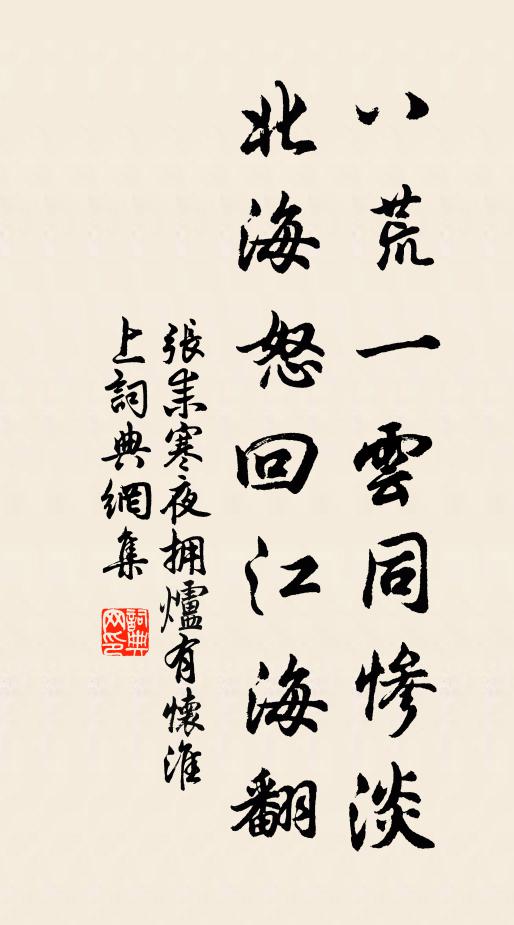 八荒一雲同慘淡
北海怒回江海翻
張耒寒夜拥爐有懷淮
上詞典網集
詞典
网印